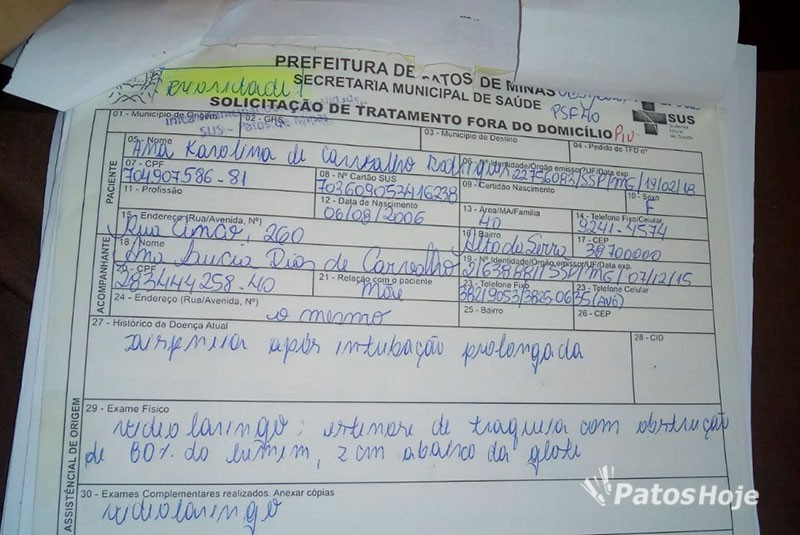 PREFEITURA DE PATOS DE MINAS
SECRETARIA MUNICIPAL DE SAÚDE
SOLICITAÇÃO DE TRATAMENTO FORA DO DOMICÍLIO
PSF 40
SUS
SUS - Patos de Minas
PACIENTE
01 - Município de Origem
02 - GRS
03 - Município de Destino
04 - Pedido de TFD nº
05 - Nome
Ana Karolina de Carvalho Rodrigues
06 - Nº Identidade/Orgão emissor/UF/Data exp.
22756083/SSP/MG/19/02/18
07 - CPF
704907586-81
08 - Nº Cartão SUS
703609053416238
09 - Certidão Nascimento
10 - Sexo
F
11 - Profissão
12 - Data de Nascimento
06/08/2006
13 - Área/MA/Família
40
14 - Telefone Fixo/Celular
9241-4574
15 - Endereço (Rua/Avenida, Nº)
260
16 - Bairro
Alto da Serra
17 - CEP
38700000
ACOMPANHANTE
18 - Nome
Ana Lucia Dias de Carvalho
19 - Nº Identidade/Orgão emissor/UF/Data exp.
SSP/MG/07/12/15
20 - CPF
283444258-40
21 - Relação com o paciente
Mãe
22 - Telefone Fixo
38219053/3825-0635 (Avó)
23 - Telefone Celular
24 - Endereço (Rua/Avenida, Nº)
o mesmo
25 - Bairro
26 - CEP
ASSISTÊNCIAL DE ORIGEM
27 - Histórico da Doença Atual
28 - CID
Dispneia após intubação prolongada
29 - Exame Físico
videolaringo: estenose de traqueia com obstrução
de 80% do lumem, 2 cm abaixo da glote
30 - Exames Complementares realizados. Anexar cópias
videolaringo
PatosHoje